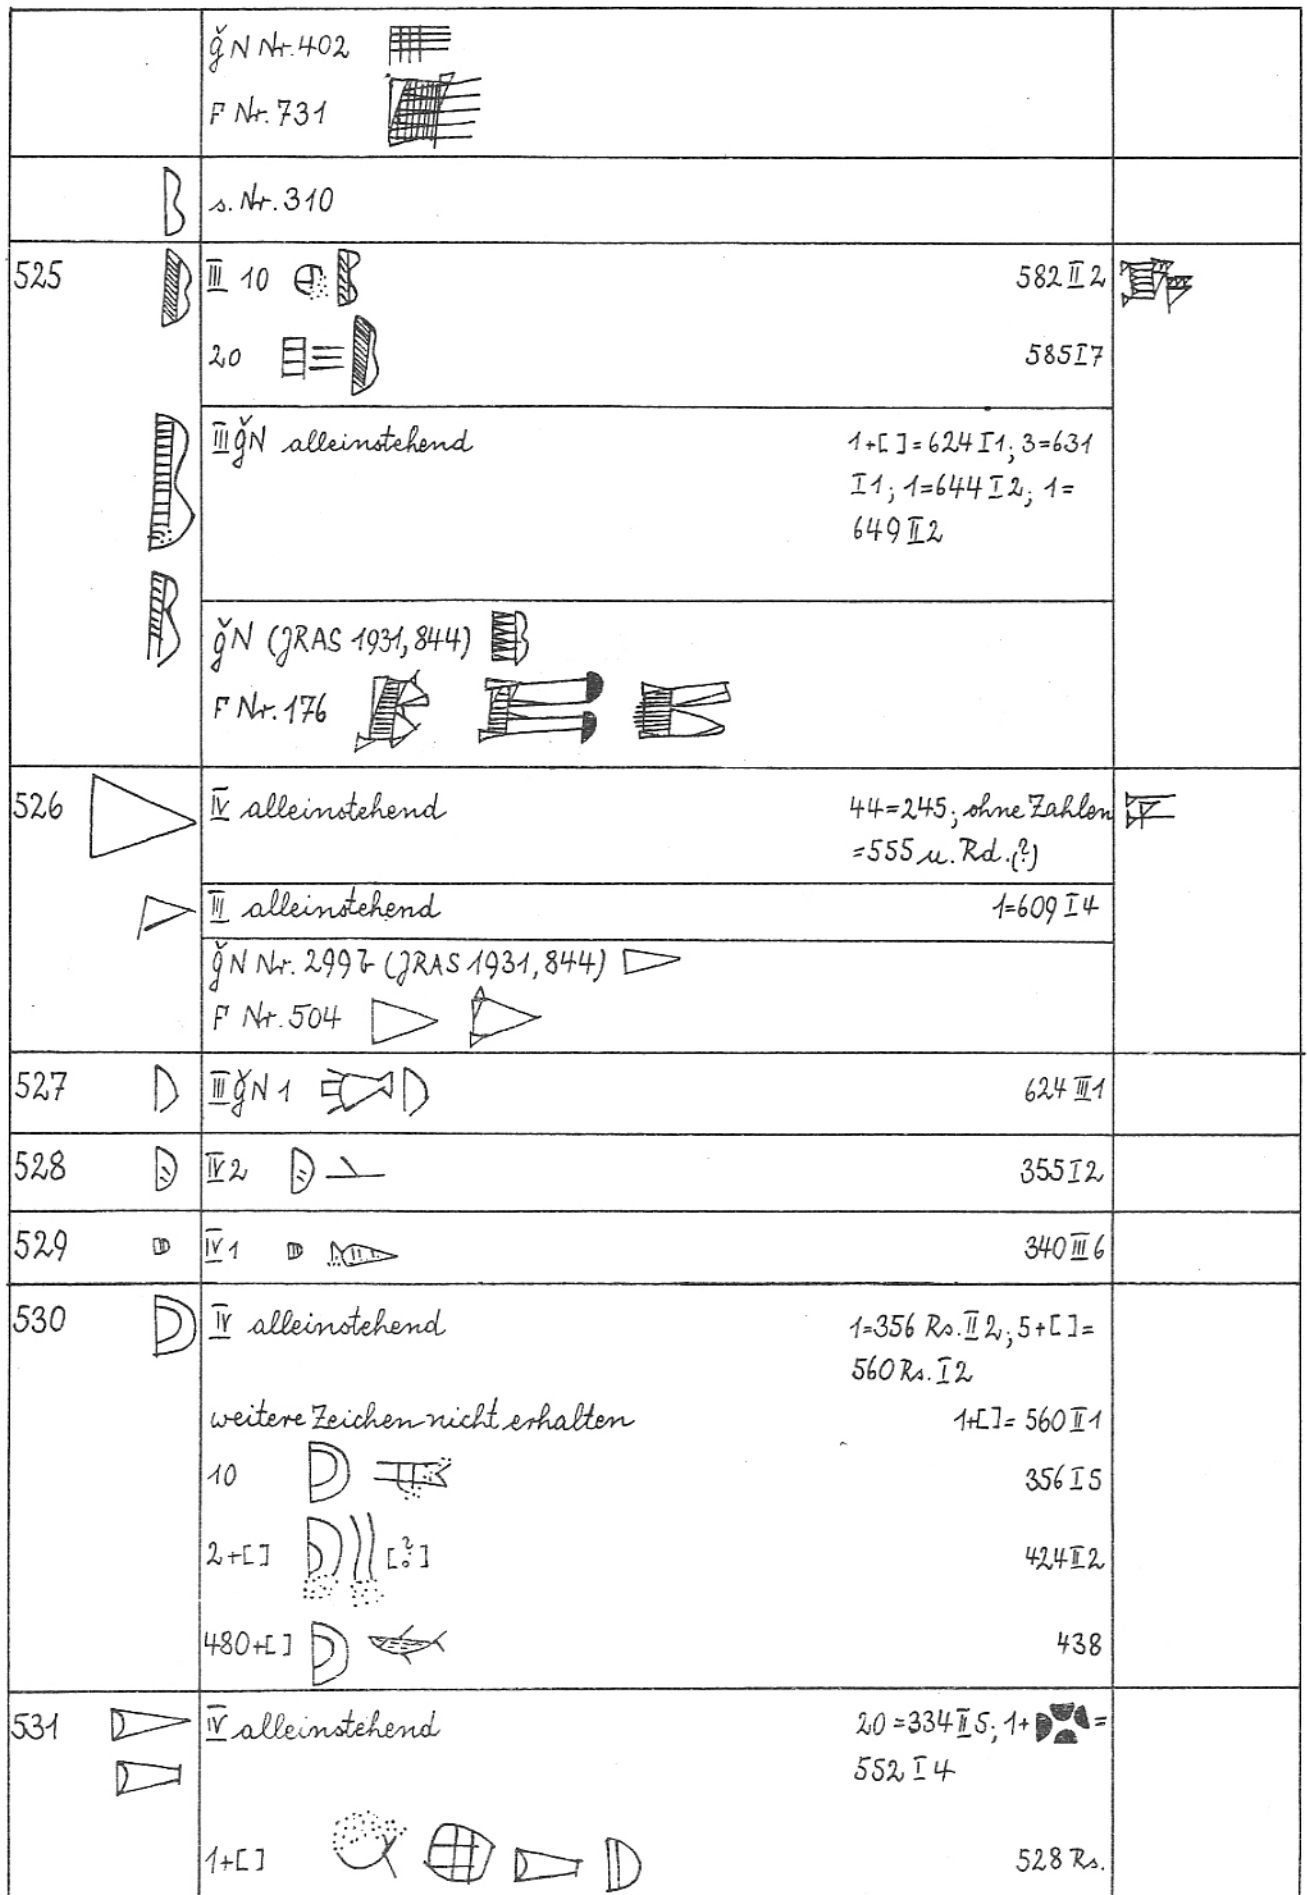 ǧN Nr. 402
F Nr. 731
s. Nr. 310
525 III 10 582 II 2
20 585 I 7
III ǧN alleinstehend 1+[ ]=624 I 1; 3=631
I 1; 1=644 I 2; 1=
649 II 2
ǧN (JRAS 1931, 844)
F Nr. 176
526 IV alleinstehend 44=245; ohne Zahlen
=555 u. Rd. (?)
III alleinstehend 1=609 I 4
ǧN Nr. 299b (JRAS 1931, 844)
F Nr. 504
527 III ǧN 1 624 III 1
528 IV 2 355 I 2
529 IV 1 340 III 6
530 IV alleinstehend 1=356 Rs. II 2; 5+[ ]=
560 Rs. I 2
weitere Zeichen nicht erhalten 1+[ ]= 560 II 1
10 356 I 5
2+[ ] [?] 424 II 2
480+[ ] 438
531 IV alleinstehend 20=334 II 5; 1+ =
552 I 4
1+[ ] 528 Rs.